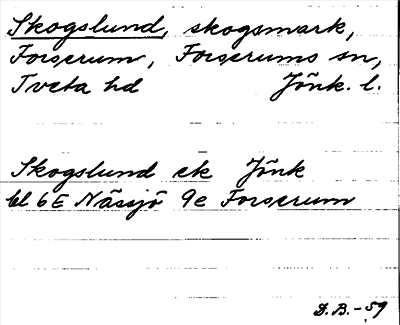 Skogslund, skogsmark,
Forserum, Forserums sn,
Tveta hd Jönk. l.
Skogslund ek Jönk
bl 6E Nässjö 9e Forserum
D.B.-59